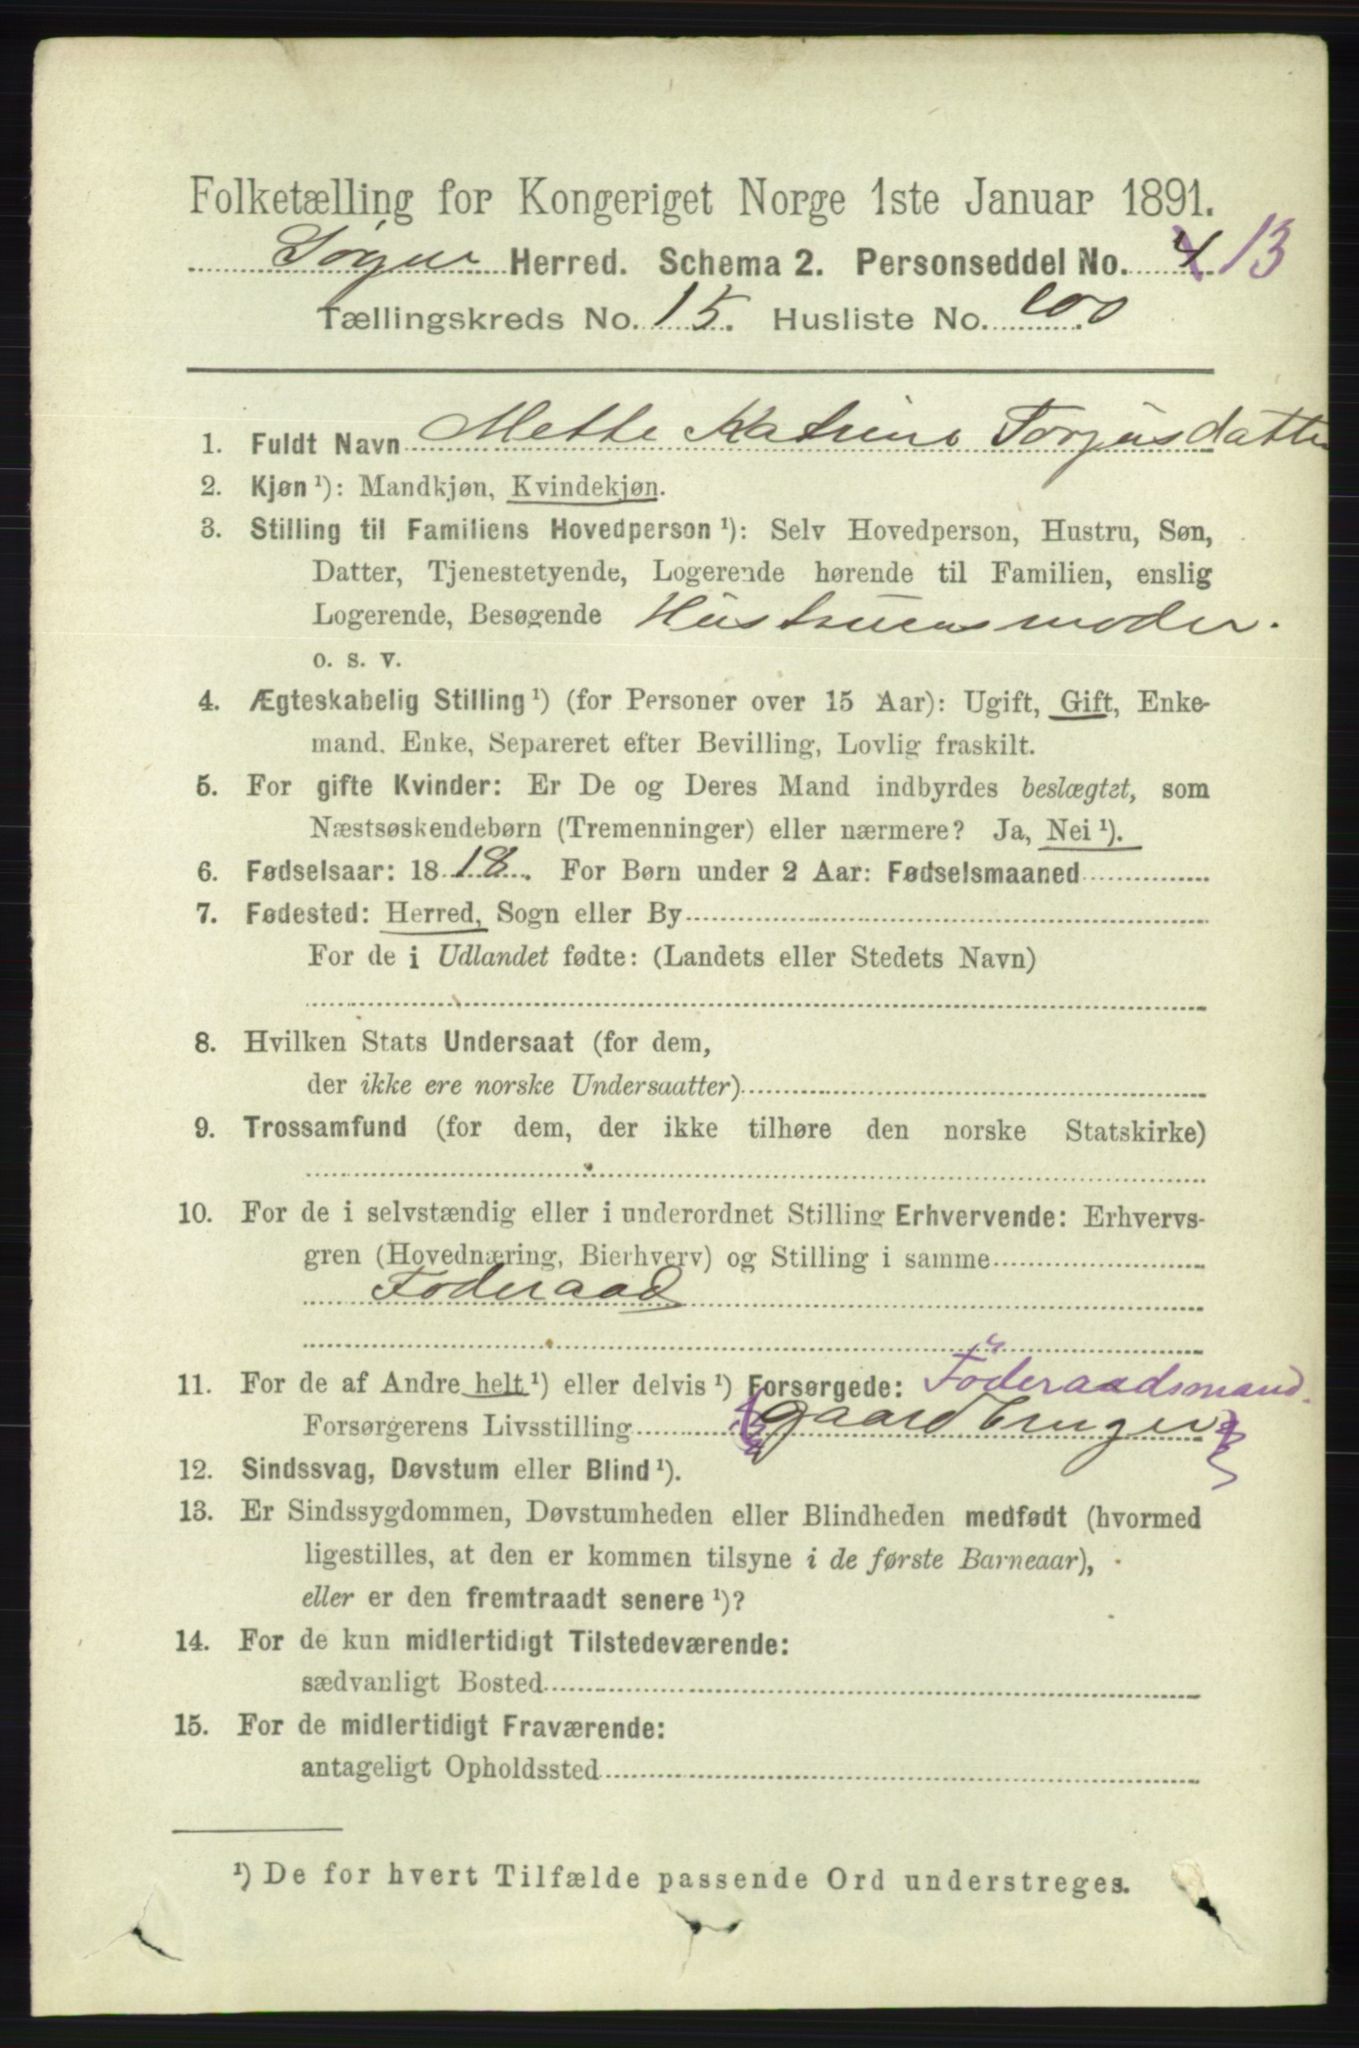 Folketælling for Kongeriget Norge 1ste Januar 1891.
Søgne Herred. Schema 2. Personseddel No. 4 13
Tællingskreds No. 15. Husliste No.
1. Fuldt Navn Mette Katrine Torjusdatter
2. Kjøn ¹): Mandkjøn, Kvindekjøn.
3. Stilling til Familiens Hovedperson ¹): Selv Hovedperson, Hustru, Søn,
Datter, Tjenestetyende, Logerende hørende til Familien, enslig
Logerende, Besøgende Hustruensmoder.
o. s. v.
4. Ægteskabelig Stilling ¹) (for Personer over 15 Aar): Ugift, Gift, Enke-
mand. Enke, Separeret efter Bevilling, Lovlig fraskilt.
5. For gifte Kvinder: Er De og Deres Mand indbyrdes beslægtet, som
Næstsøskendebørn (Tremenninger) eller nærmere? Ja, Nei ¹).
6. Fødselsaar: 18 18. For Børn under 2 Aar: Fødselsmaaned
7. Fødested: Herred, Sogn eller By
For de i Udlandet fødte: (Landets eller Stedets Navn)
8. Hvilken Stats Undersaat (for dem,
der ikke ere norske Undersaatter)
9. Trossamfund (for dem, der ikke tilhøre den norske Statskirke)
10. For de i selvstændig eller i underordnet Stilling Erhvervende: Erhvervs-
gren (Hovednæring, Bierhverv) og Stilling i samme
Foderaad
11. For de af Andre helt ¹) eller delvis ¹) Forsørgede: Föderaadsmand.
Forsørgerens Livsstilling gaardbruger
12. Sindssvag, Døvstum eller Blind ¹).
13. Er Sindssygdommen, Døvstumheden eller Blindheden medfødt (hvormed
ligestilles, at den er kommen tilsyne i de første Barneaar),
eller er den fremtraadt senere ¹)?
14. For de kun midlertidigt Tilstedeværende:
sædvanligt Bosted
15. For de midlertidigt Fraværende:
antageligt Opholdssted
¹) De for hvert Tilfælde passende Ord understreges.